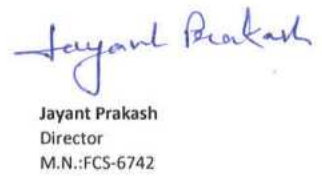 Jayant Prakash
Jayant Prakash
Director
M.N.:FCS-6742